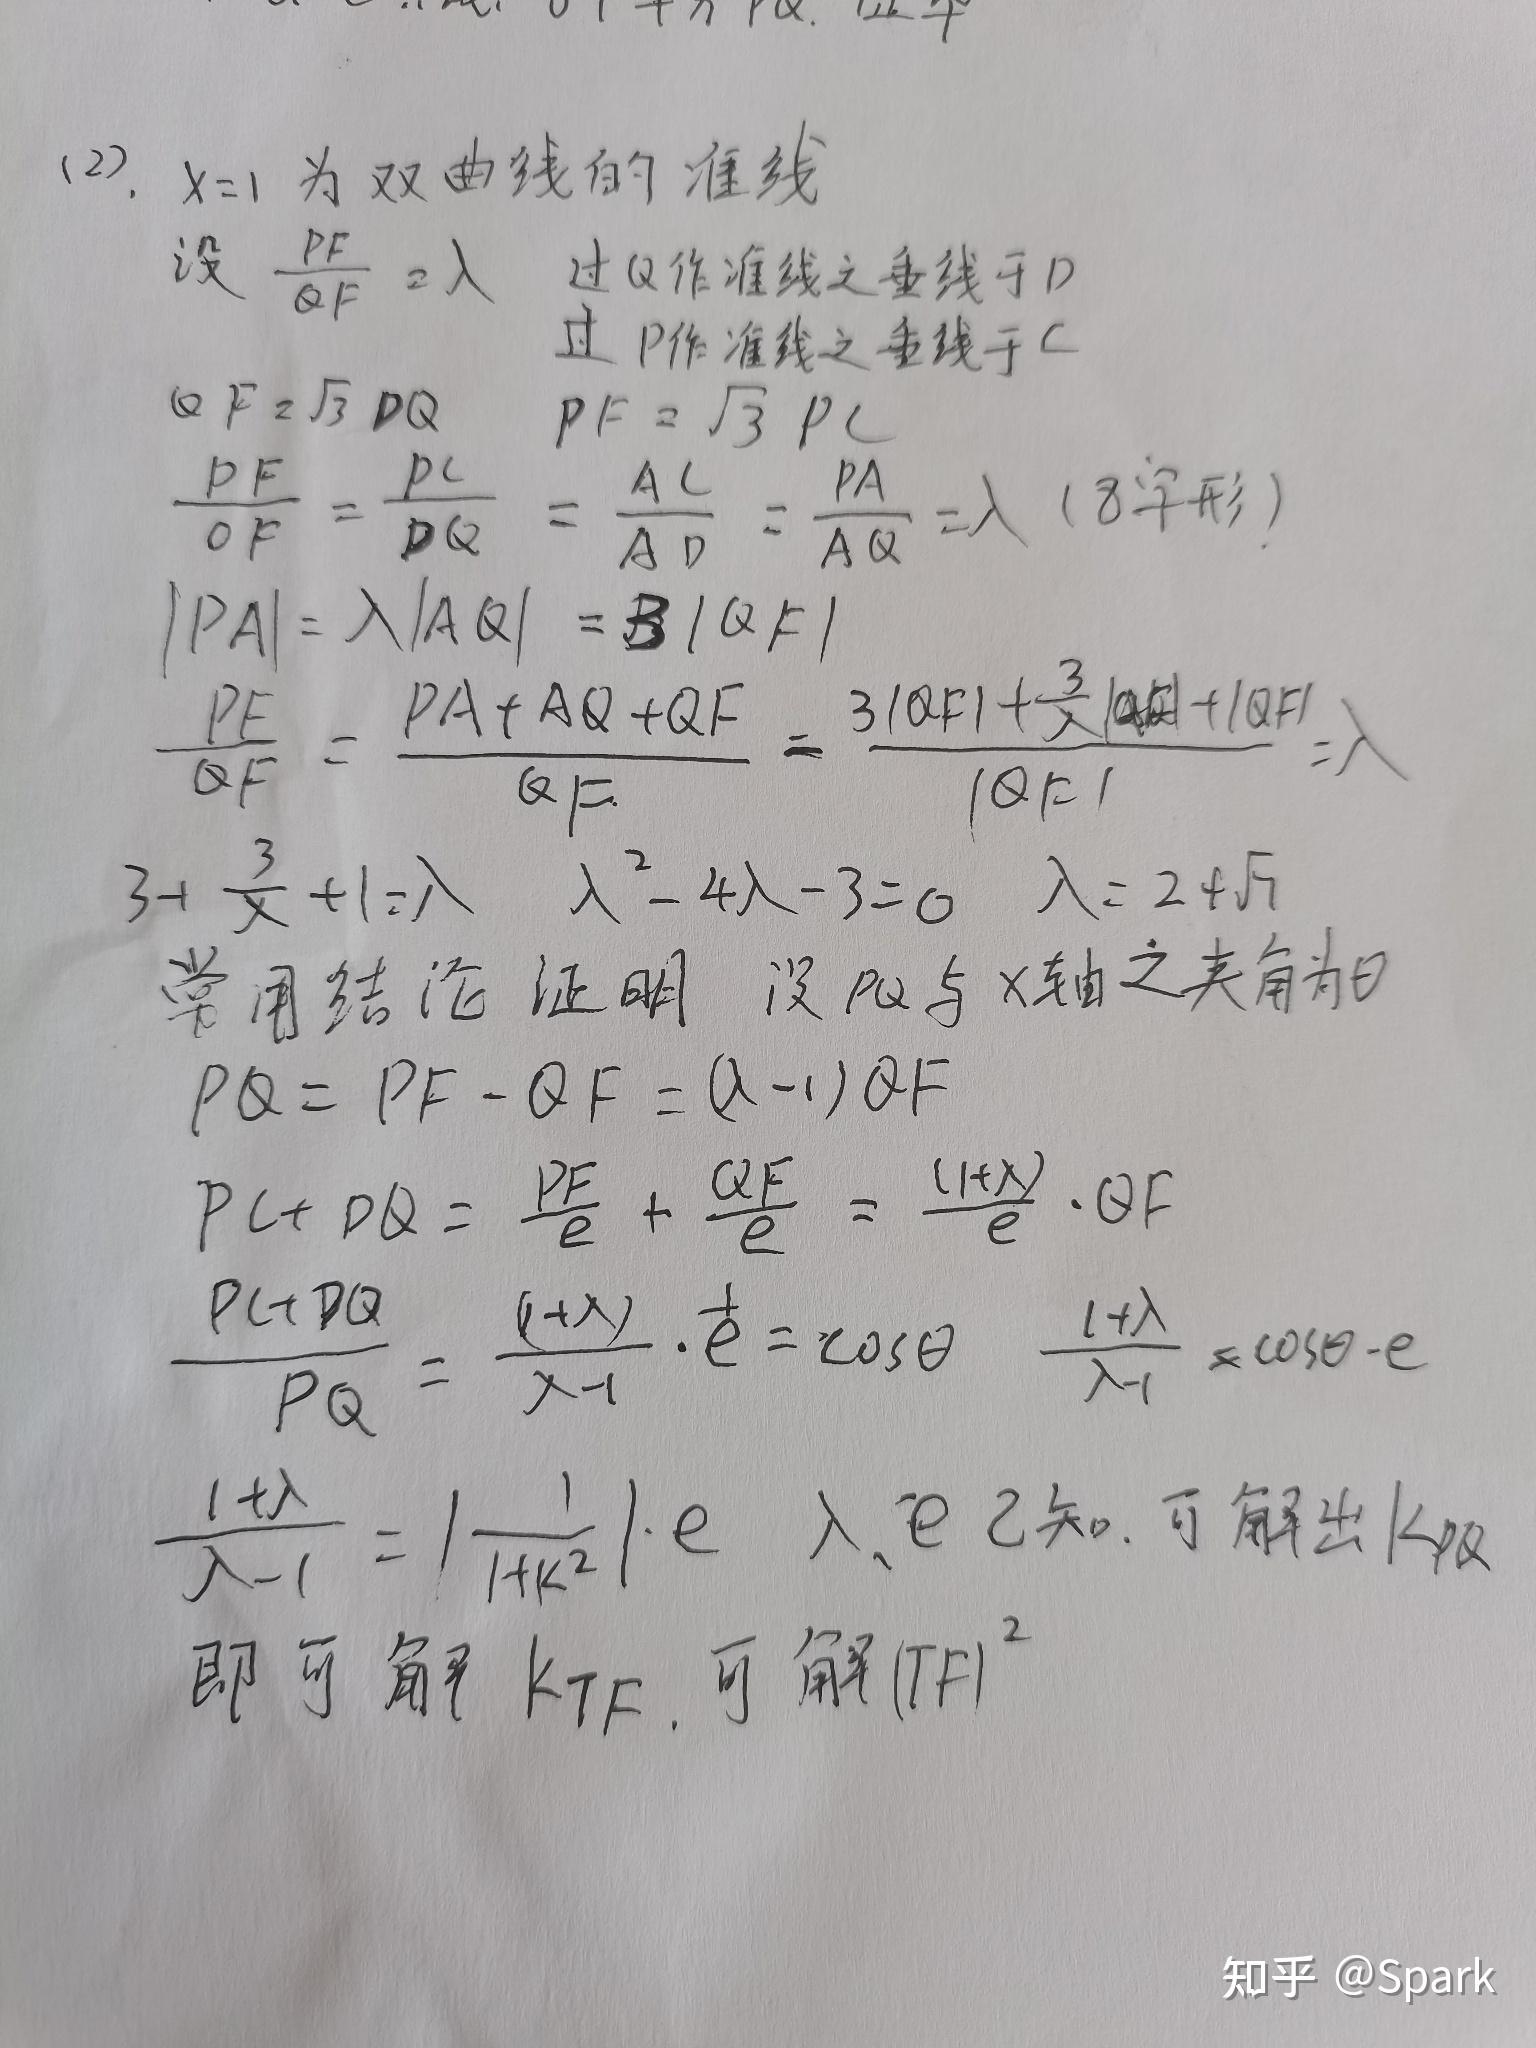 OT平分PQ.
(2). x=1 为双曲线的准线
设 PF/QF = λ 过Q作准线之垂线于D
过P作准线之垂线于C
QF=√3 DQ PF=√3 PC
PF/QF = PC/DQ = AC/AD = PA/AQ = λ (8字形)
|PA|=λ|AQ| =3|QF|
PF/QF = (PA+AQ+QF)/QF = (3|QF|+3/λ|QF|+|QF|)/|QF| =λ
3+3/λ+1=λ λ²-4λ-3=0 λ=2+√7
常用结论证明 设PQ与x轴之夹角为θ
PQ= PF-QF =(λ-1)QF
PC+DQ = PF/e + QF/e = (1+λ)/e ·QF
(PC+DQ)/PQ = (1+λ)/(λ-1) · 1/e = cosθ (1+λ)/(λ-1) = cosθ·e
(1+λ)/(λ-1) = |1/(1+k²)|·e λ、e 已知.可解出KPQ
即可解KTF.可解|TF|²
知乎 @Spark